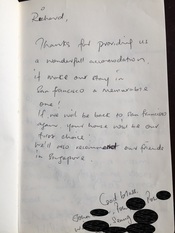 Richard,
Thanks for providing us
a wonderfull accomodation,
it make our stay in
San Francisco a memorable
one!
If we will be back to San Francisco
again your house will be our
first choice.
We'll also recommend our friends
in Singapore
God bless